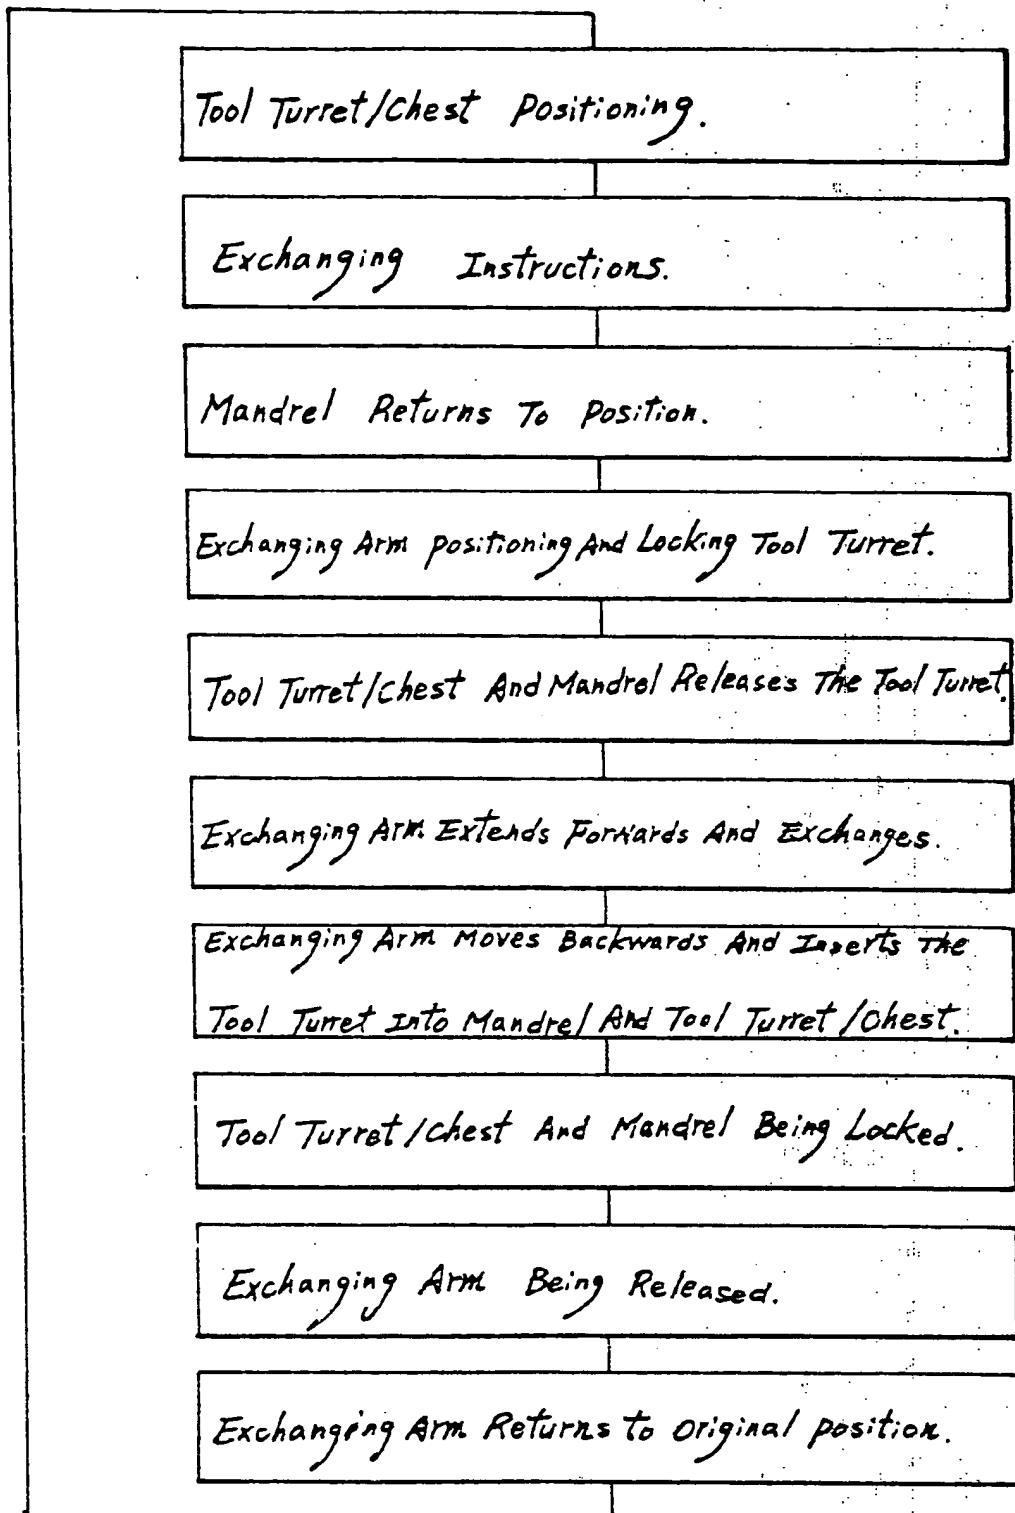 Tool Turret/Chest Positioning.
Exchanging Instructions.
Mandrel Returns To Position.
Exchanging Arm positioning And Locking Tool Turret.
Tool Turret/Chest And Mandrel Releases The Tool Turret.
Exchanging Arm Extends Forwards And Exchanges.
Exchanging Arm Moves Backwards And Inserts The
Tool Turret Into Mandrel And Tool Turret/Chest.
Tool Turret/Chest And Mandrel Being Locked.
Exchanging Arm Being Released.
Exchanging Arm Returns to original position.